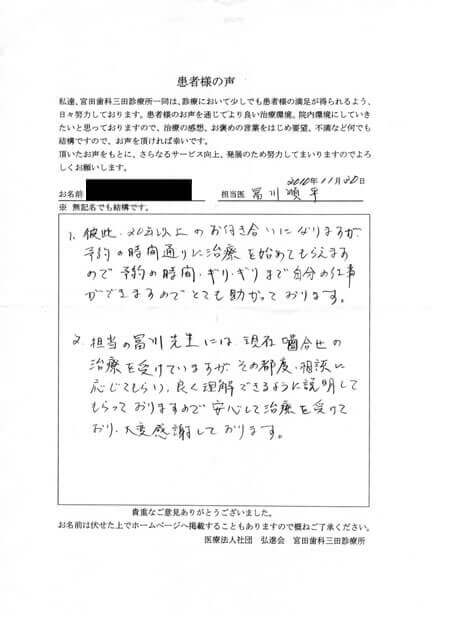 患者様の声
私達、宮田歯科三田診療所一同は、診療において少しでも患者様の満足が得られるよう、
日々努力しております。患者様のお声を通じてより良い治療環境、院内環境にしていき
たいと思っておりますので、治療の感想、お褒めの言葉をはじめ要望、不満など何でも
結構ですので、お声を頂ければ幸いです。
頂いたお声をもとに、さらなるサービス向上、発展のため努力してまいりますのでよろ
しくお願いします。
2010年11月20日
お名前 担当医 冨川 順平
※ 無記名でも結構です。
1. 彼此、20年以上のお付き合いになりますが、
予約の時間通りに治療を始めてもらえます
ので予約の時間ギリギリまで自分の仕事
ができますのでとても助かっております。
2. 担当の冨川先生には、現在 嚙合せの
治療を受けていますが、その都度、相談に
応じてもらい、良く理解できるように説明して
もらっておりますので安心して治療を受けて
おり、大変感謝しております。
貴重なご意見ありがとうございました。
お名前は伏せた上でホームページへ掲載することもありますので概ねご了承ください。
医療法人社団 弘進会 宮田歯科三田診療所